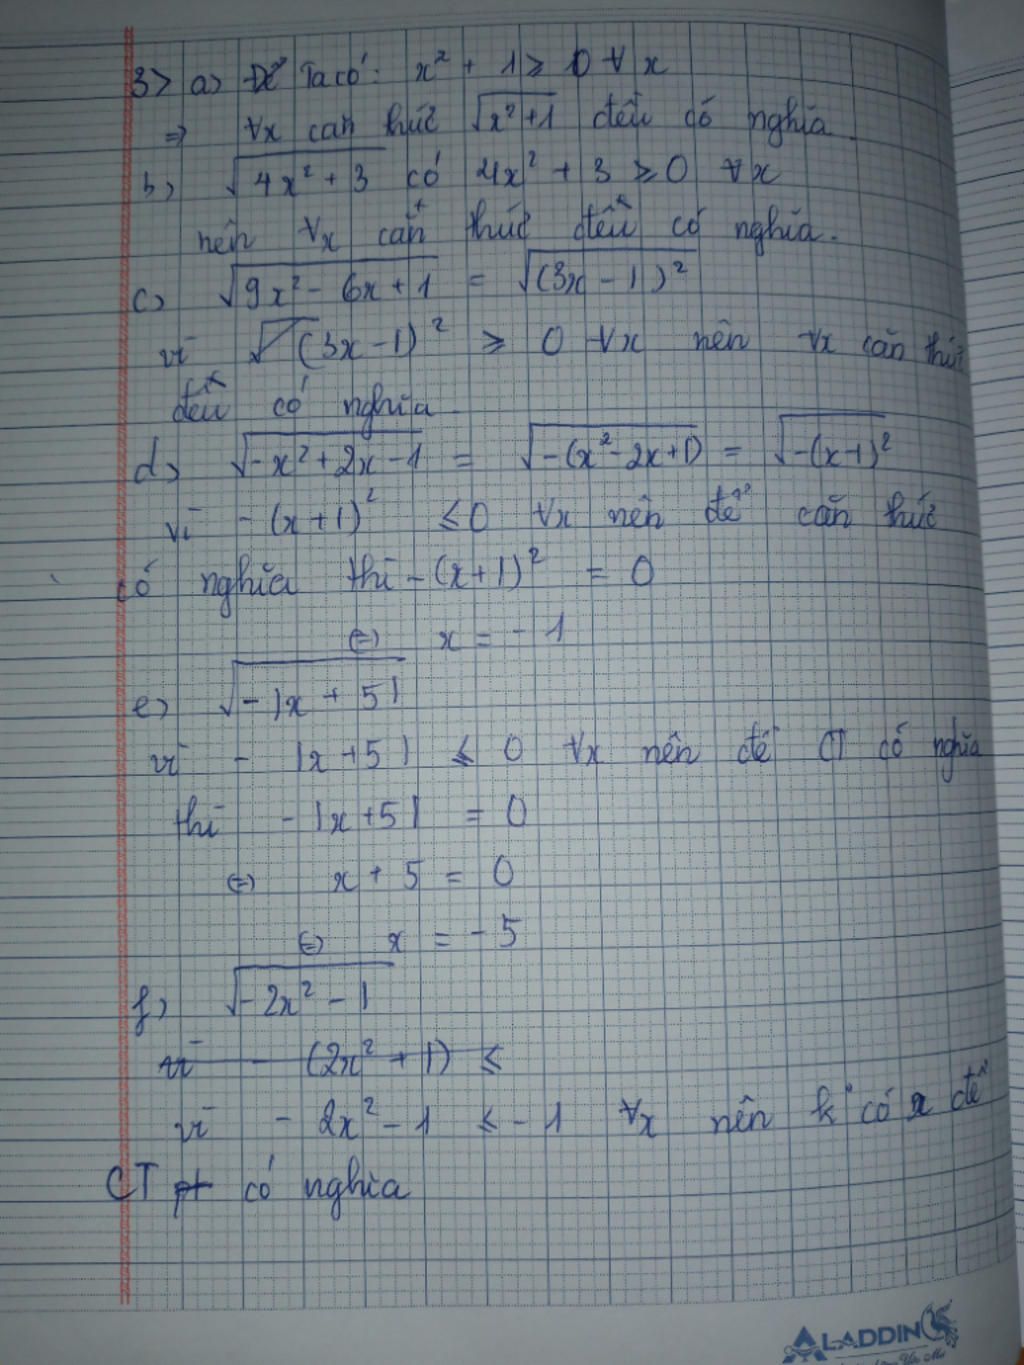 3> a> Để Ta có: x² + 1 ≥ 0 ∀x
⇒ ∀x căn thức √(x²+1) đều có nghĩa.
b> √(4x² + 3) có 4x² + 3 ≥ 0 ∀x
nên ∀x căn thức đều có nghĩa.
c> √(9x² - 6x + 1) = √((3x - 1)²)
vì √(3x - 1)² ≥ 0 ∀x nên ∀x căn thức
đều có nghĩa.
d> √(-x² + 2x - 1) = √(-(x² - 2x + 1)) = √(-(x-1)²)
vì -(x+1)² ≤ 0 ∀x nên để căn thức
có nghĩa thì -(x+1)² = 0
⇔ x = -1
e> √(-|x + 5|)
vì -|x + 5| ≤ 0 ∀x nên để CT có nghĩa
thì -|x + 5| = 0
⇔ x + 5 = 0
⇔ x = -5
f> √(-2x² - 1)
vì - (2x² + 1) ≤
vì - 2x² - 1 ≤ -1 ∀x nên k° có x để
CT pt có nghĩa
ALADDIN